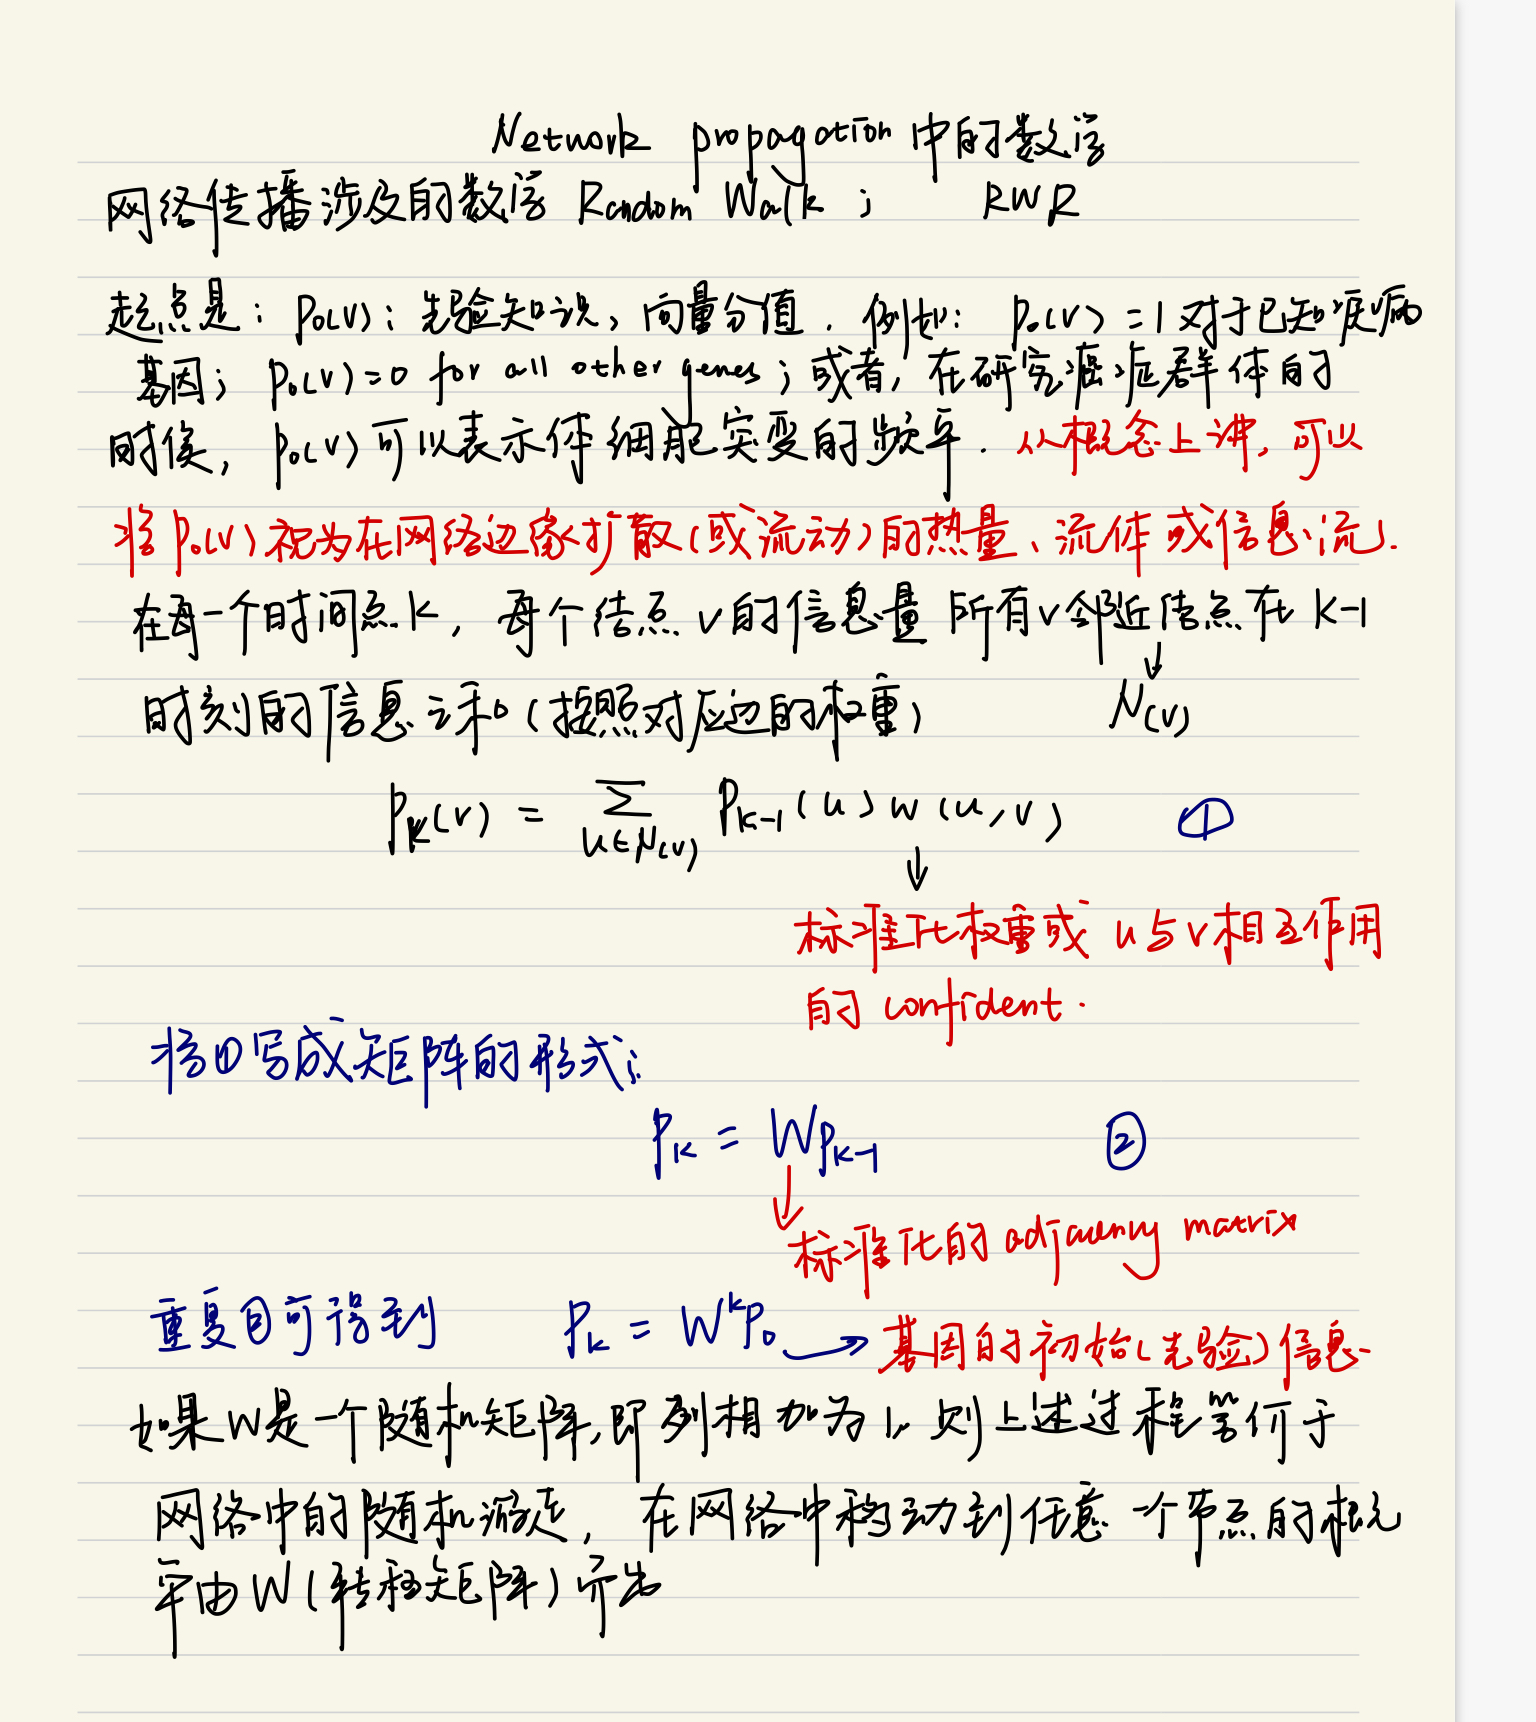 Network propagation 中的数学
网络传播涉及的数学 Random Walk ; RWR
起点是: P₀(v): 先验知识、向量分值. 例如: P₀(v)=1 对于已知疾病
基因; P₀(v)=0 for all other genes; 或者, 在研究癌症群体的
时候, P₀(v) 可以表示体细胞突变的频率. 从概念上讲, 可以
将 P₀(v) 视为在网络边缘扩散(或流动)的热量、流体或信息流.
在每一个时间点 k, 每个结点 v 的信息量 所有 v 邻近结点在 k-1
时刻的信息之和(按照对应边的权重) N(v)
Pₖ(v) = Σ Pₖ₋₁(u) w(u,v) ①
u∈N(v)
标准化权重或 u与v相互作用
的 confident.
将①写成矩阵的形式:
Pₖ = WPₖ₋₁ ②
标准化的 adjacency matrix
重复②可得到 Pₖ = WᵏP₀ 基因的初始(先验)信息.
如果W是一个随机矩阵,即列相加为1, 则上述过程等价于
网络中的随机游走, 在网络中移动到任意一个节点的概
率由W(转移矩阵)给出